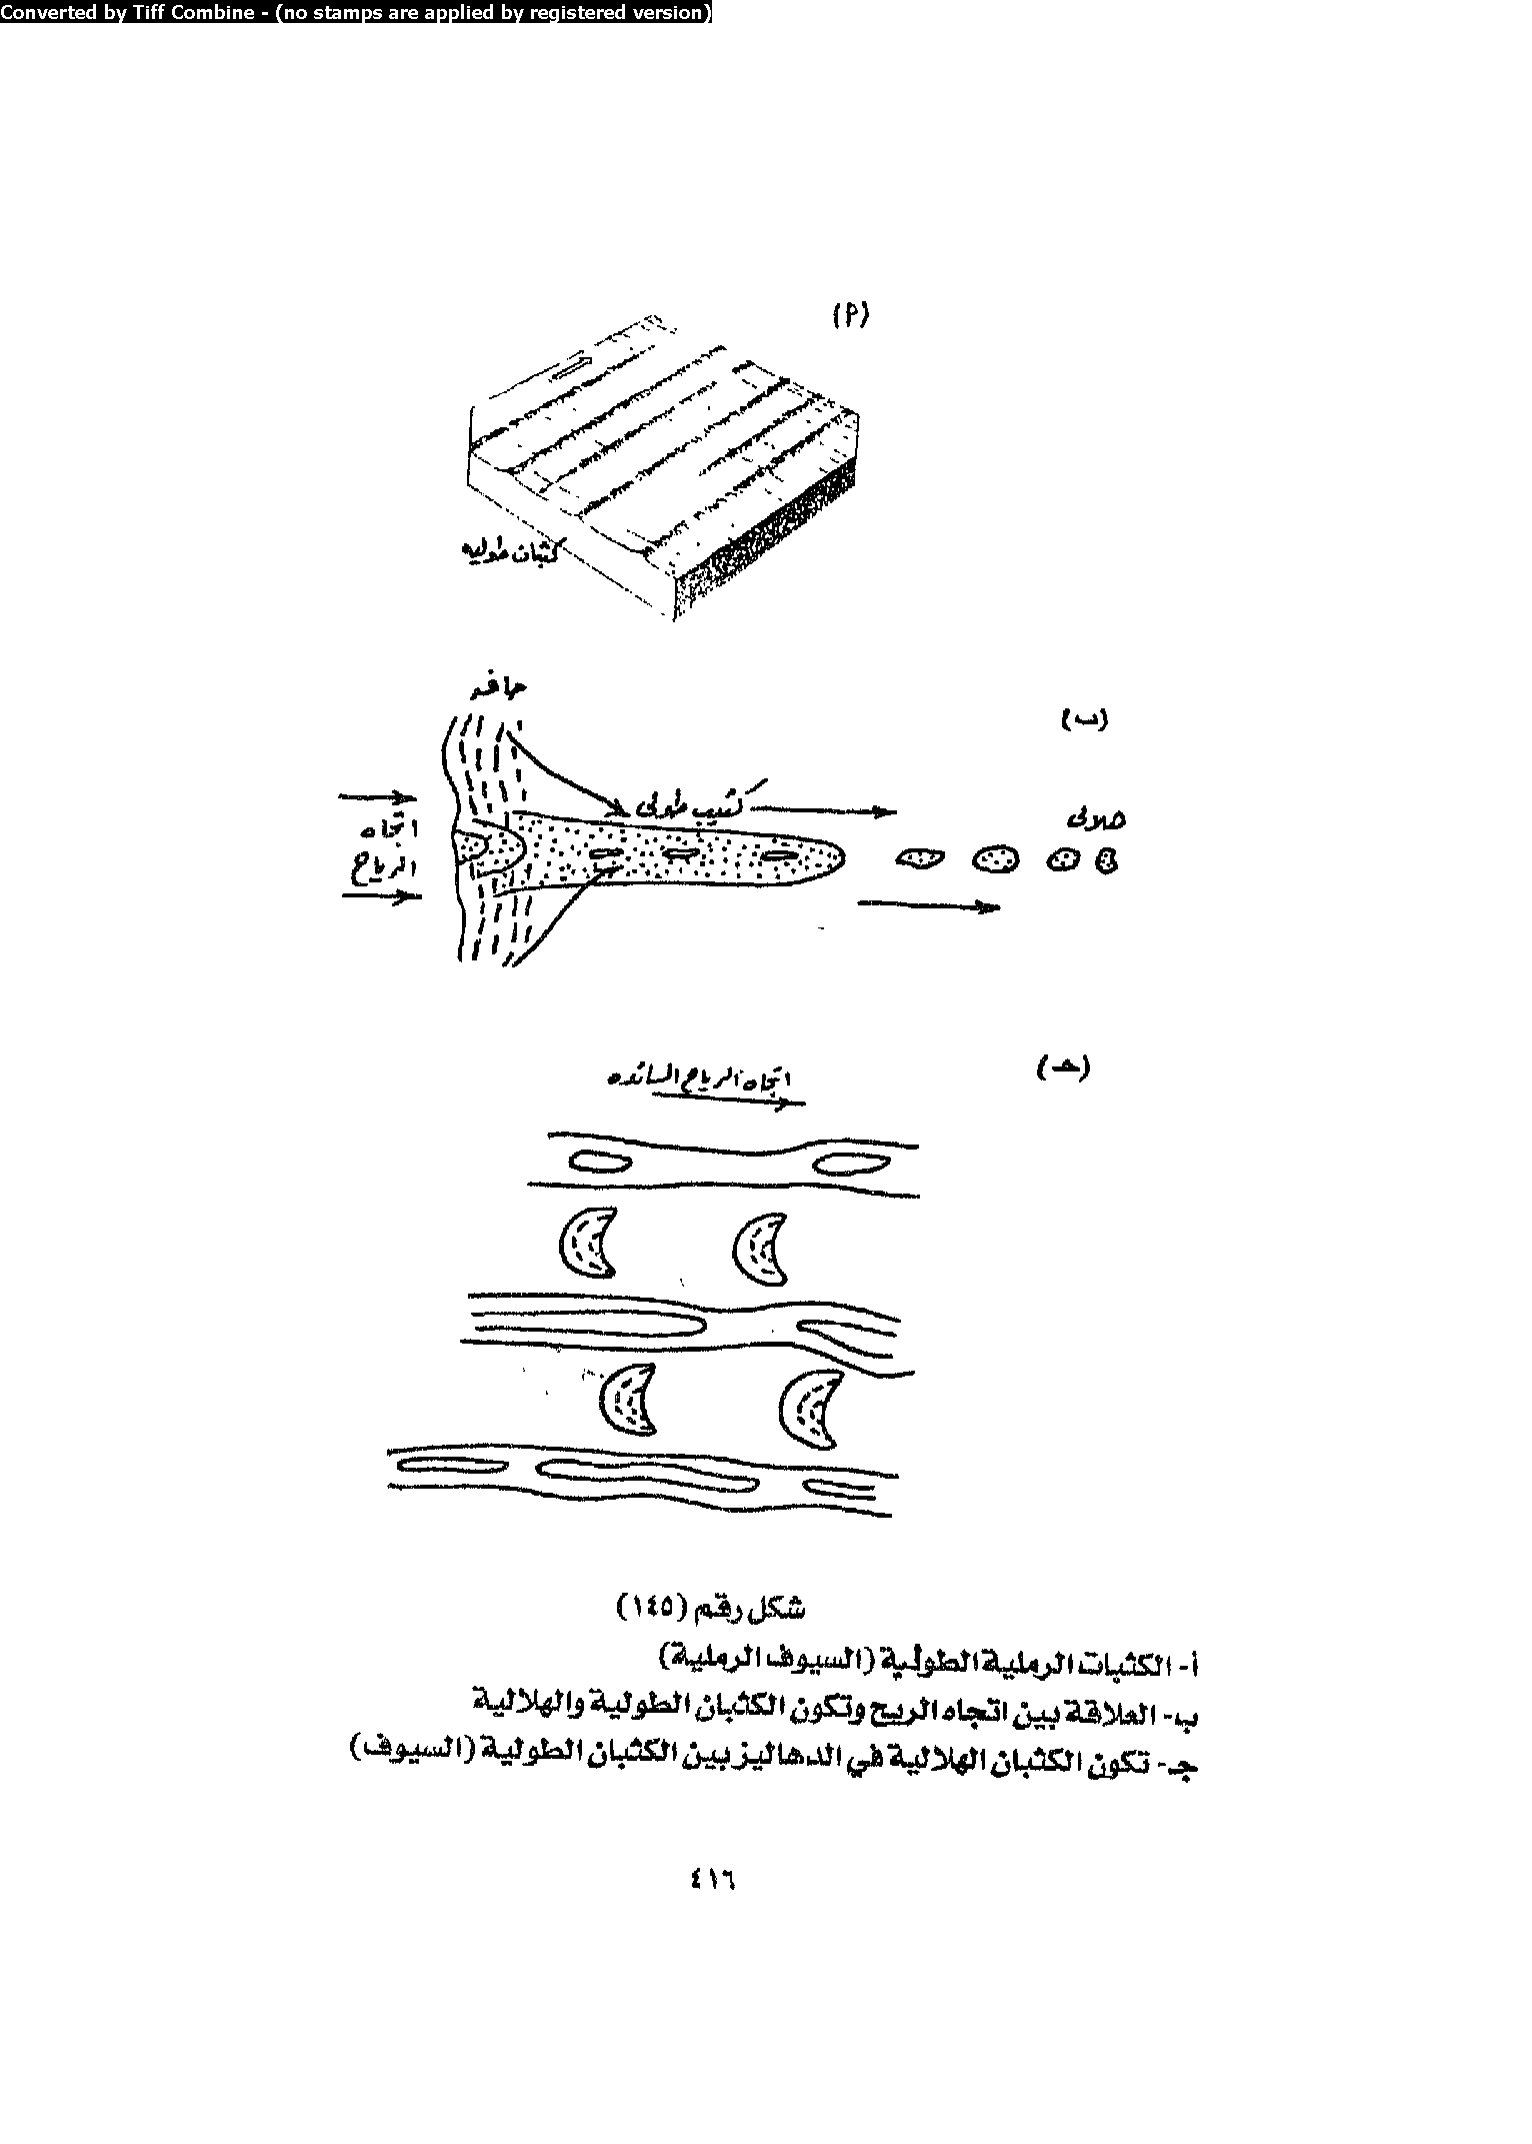 Converted by Tiff Combine - (no stamps are applied by registered version)
(أ)
كثبان طوليه
حافه
(ب)
كثيب طولى
هلالى
اتجاه
الرياح
(حـ)
اتجاه الرياح السائده
شكل رقم (١٤٥)
أ- الكثبات الرملية الطولية (السيوف الرملية)
ب- العلاقة بين اتجاه الريح وتكون الكثبان الطولية والهلالية
جـ- تكون الكثبان الهلالية في الدهاليز بين الكثبان الطولية (السيوف)
٤١٦